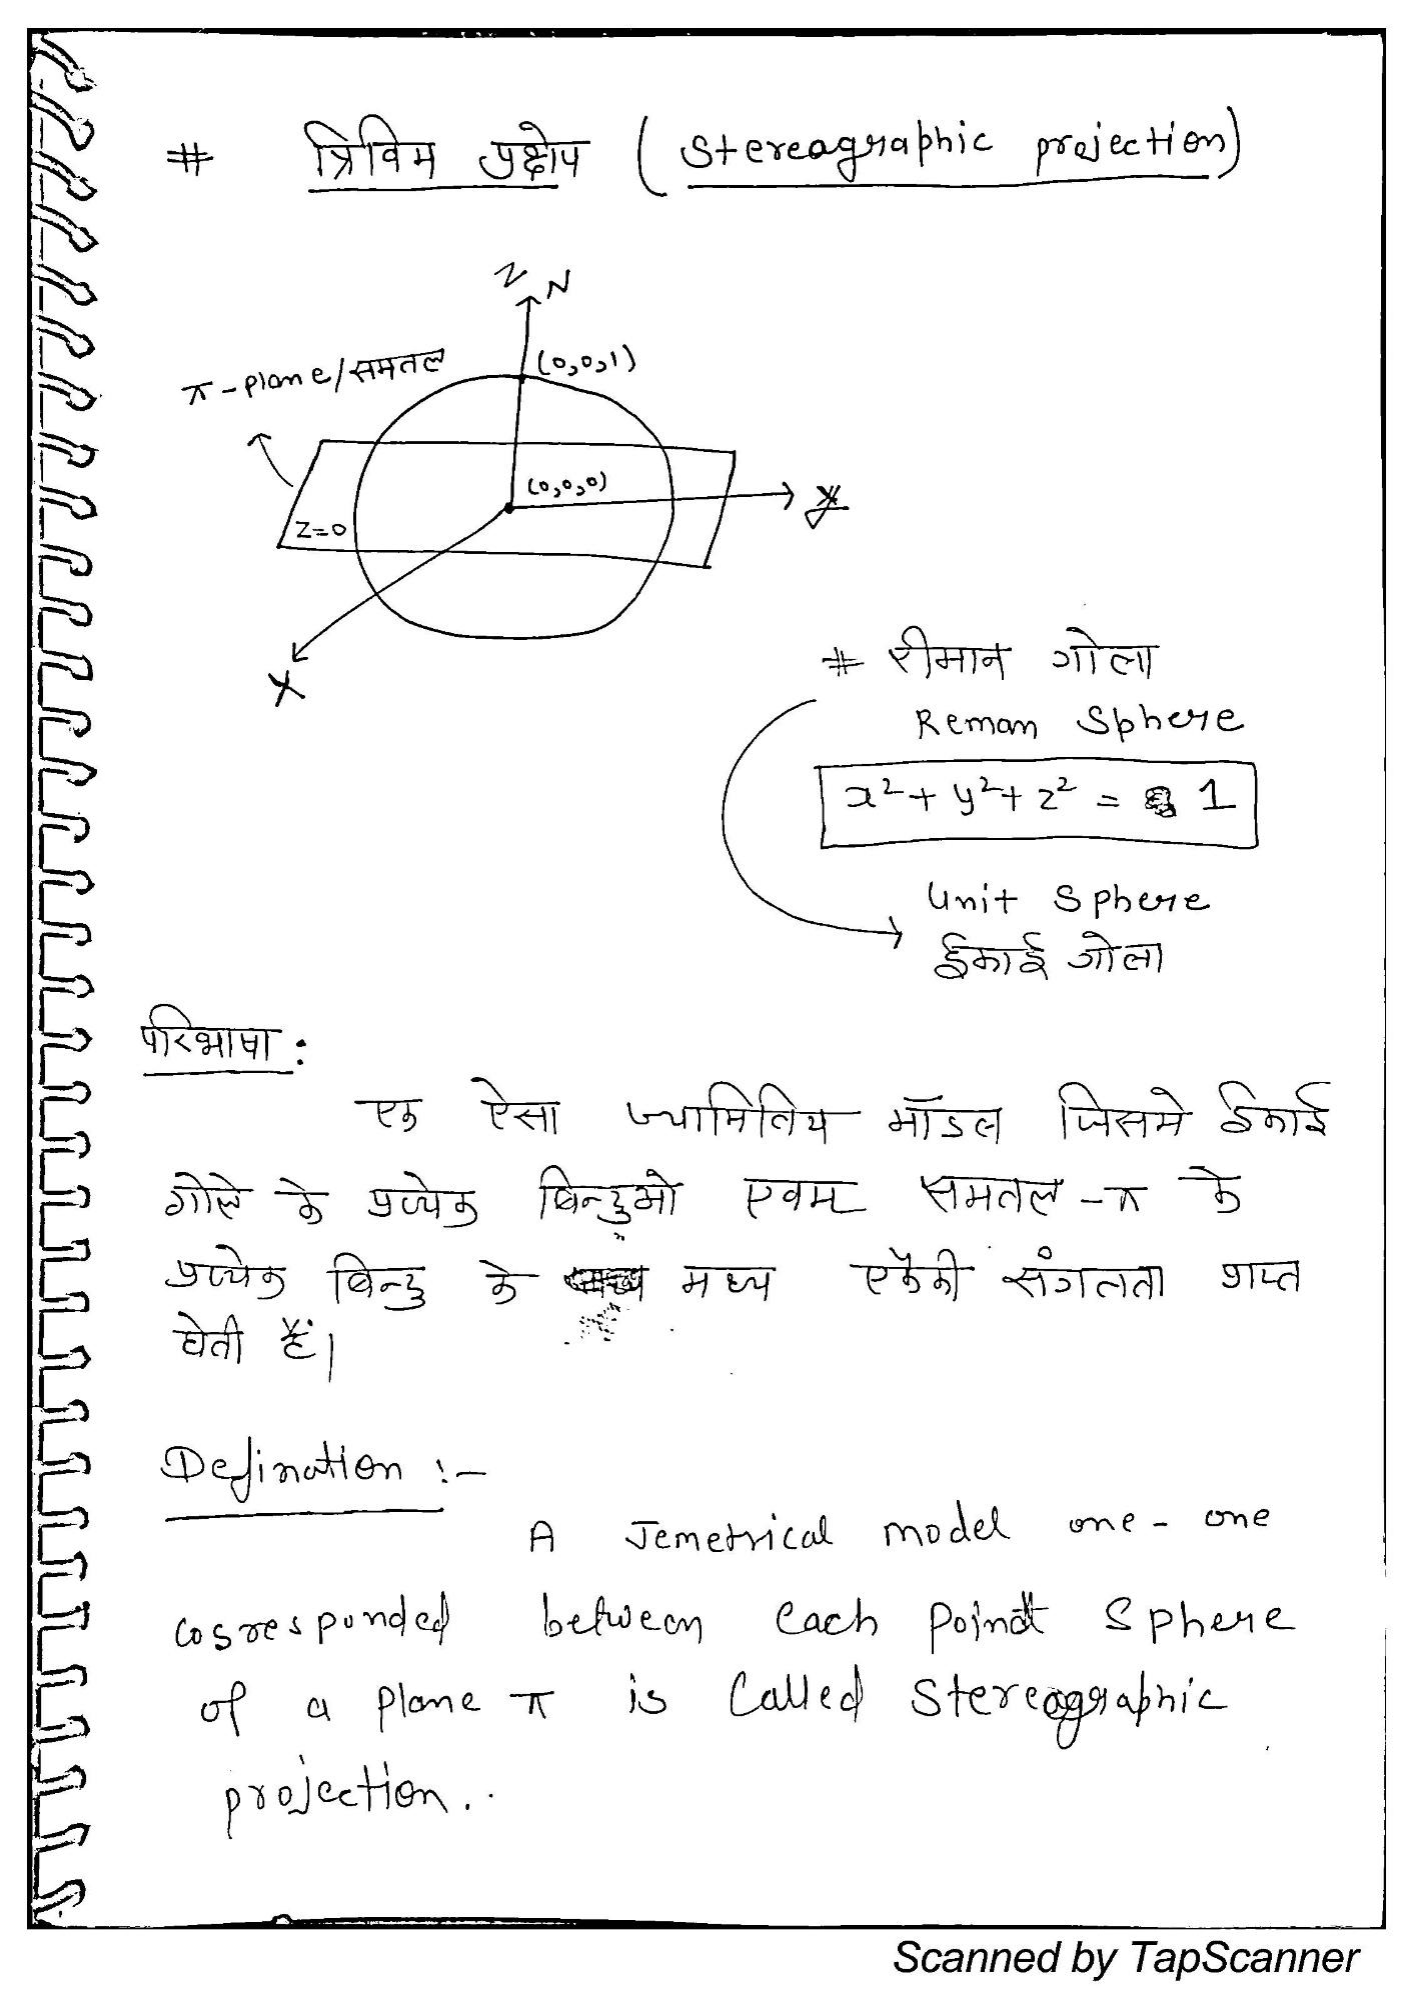 # त्रिविम प्रक्षेप (Stereographic projection)
Z N
(0,0,1)
π-plane/समतल
(0,0,0)
Z=0
Y
X
# रीमान गोला
Reman Sphere
x²+y²+z² = 1
Unit Sphere
ईकाई गोला
परिभाषा :
एक ऐसा ज्यामितिय मॉडल जिसमे ईकाई
गोले के प्रत्येक बिन्दुओ एवम समतल-π के
प्रत्येक बिन्दु के मध्य एकैकी संगलता प्राप्त
होती हैं।
Defination :-
A Jemetrical model one-one
corresponded between each point Sphere
of a plane π is called Stereographic
projection..
Scanned by TapScanner